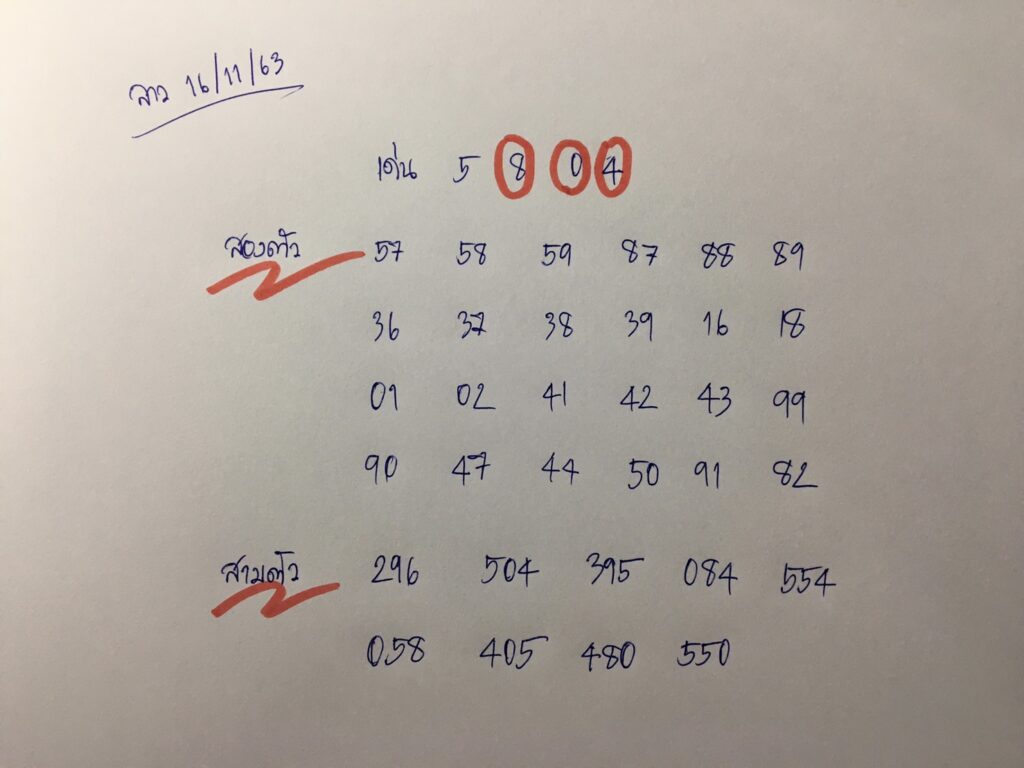 ลาว 16/11/63
เด่น 5 8 0 4
สองตัว 57 58 59 87 88 89
36 37 38 39 16 18
01 02 41 42 43 99
90 47 44 50 91 82
สามตัว 296 504 395 084 554
058 405 480 550